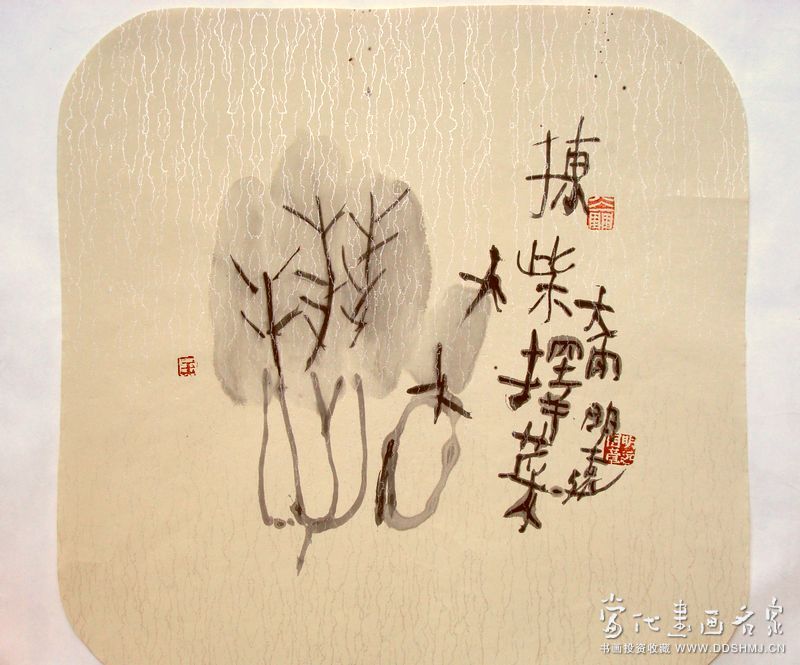 揀柴擇菜
大雨
當代書画名家
书画投资收藏 WWW.DDSHMJ.CN